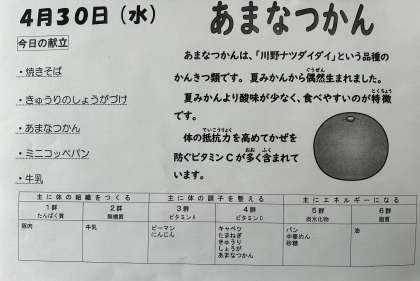 4月30日(水)
あまなつかん
今日の献立
・焼きそば
・きゅうりのしょうがづけ
・あまなつかん
・ミニコッペパン
・牛乳
あまなつかんは、「川野ナツダイダイ」という品種の
かんきつ類です。夏みかんから偶然生まれました。
ぐうぜん
夏みかんより酸味が少なく、食べやすいのが特徴
とくちょう
です。
体の抵抗力を高めてかぜを
ていこうりょく
防ぐビタミンCが多く含まれて
おお ふく
います。
主に体の組織をつくる 主に体の調子を整える 主にエネルギーになる
1群 2群 3群 4群 5群 6群
たんぱく質 無機質 ビタミンA ビタミンC 炭水化物 脂質
豚肉 牛乳 ピーマン キャベツ パン 油
にんじん たまねぎ 中華めん
きゅうり 砂糖
しょうが
あまなつかん